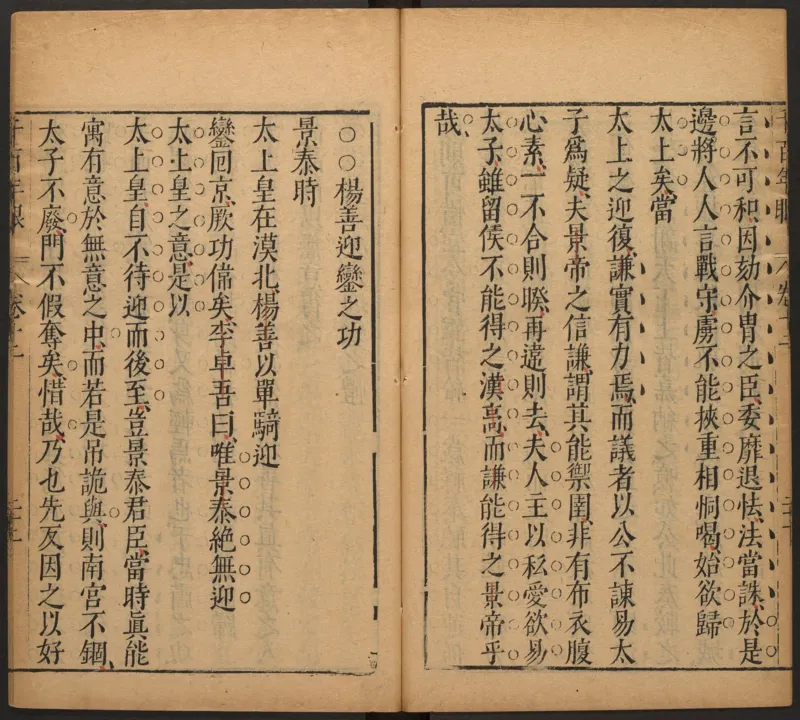 言不可和因劾介冑之臣委靡退怯法當誅於是
邊將人人言戰守虜不能挾重相恫喝始欲歸
太上矣當
太上之迎復謙實有力焉而議者以公不諫易太
子爲疑夫景帝之信謙謂其能禦圉非有布衣腹
心素一不合則暌再違則去夫人主以私愛欲易
太子雖留侯不能得之漢高而謙能得之景帝乎
哉
○○楊善迎鑾之功
景泰時
太上皇在漠北楊善以單騎迎
鑾囘京厥功偹矣李卓吾曰唯景泰絶無迎
太上皇之意是以
太上皇自不待迎而後至豈景泰君臣當時眞能
寓有意於無意之中而若是吊詭與則南宫不錮
太子不廢門不假奪矣惜哉乃也先反因之以好
千百年眼
卷十二